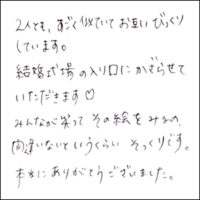 2人とも、すごく似ていてお互いびっくり
しています。
結婚式場の入り口にかざらせて
いただきます♡
みんなが笑って その絵をみるの
間違いないというくらい そっくりです。
本当にありがとうございました。